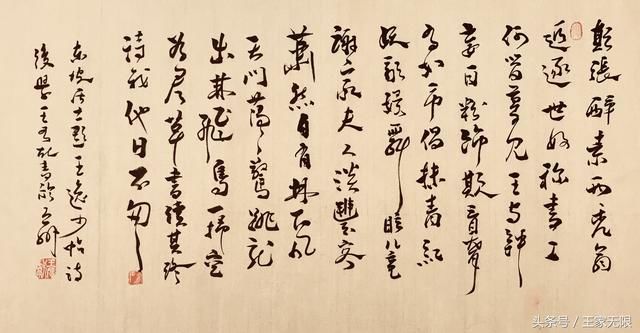 顛張醉素兩禿翁
追逐世好稱書工
何曾夢見王與鍾
妄自粉飾欺盲聾
有如市倡抹青紅
妖歌嫚舞眩兒童
謝家夫人淡豐容
蕭然自有林下風
天門蕩〻驚跳龍
出林飛鳥一掃空
為君草書續其終
待我他日不匆〻
東坡居士題王逸少帖詩
後學王
頭条号 / 王家无限